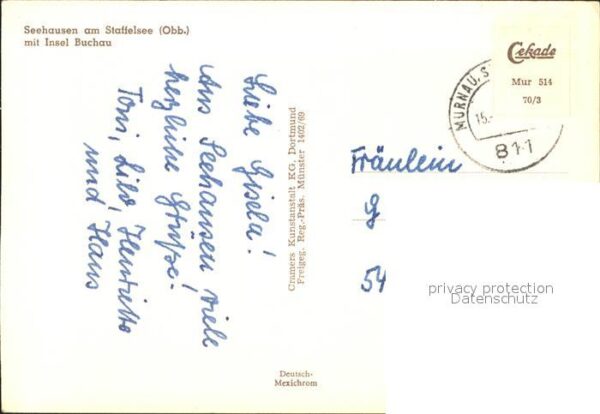 Seehausen am Staffelsee (Obb.)
mit Insel Buchau
Liebe Gisela!
Aus Seehausen viele
herzliche Grüße!
Toni, Lilo, Henriette
und Hans
Cramers Kunstanstalt KG. Dortmund
Freigeg. Reg.-Präs. Münster 1402/69
Deutsch-
Mexichrom
Cekade
Mur 514
70/3
MURNAU, S
15.-
811
Fräulein
G
54
privacy protection
Datenschutz